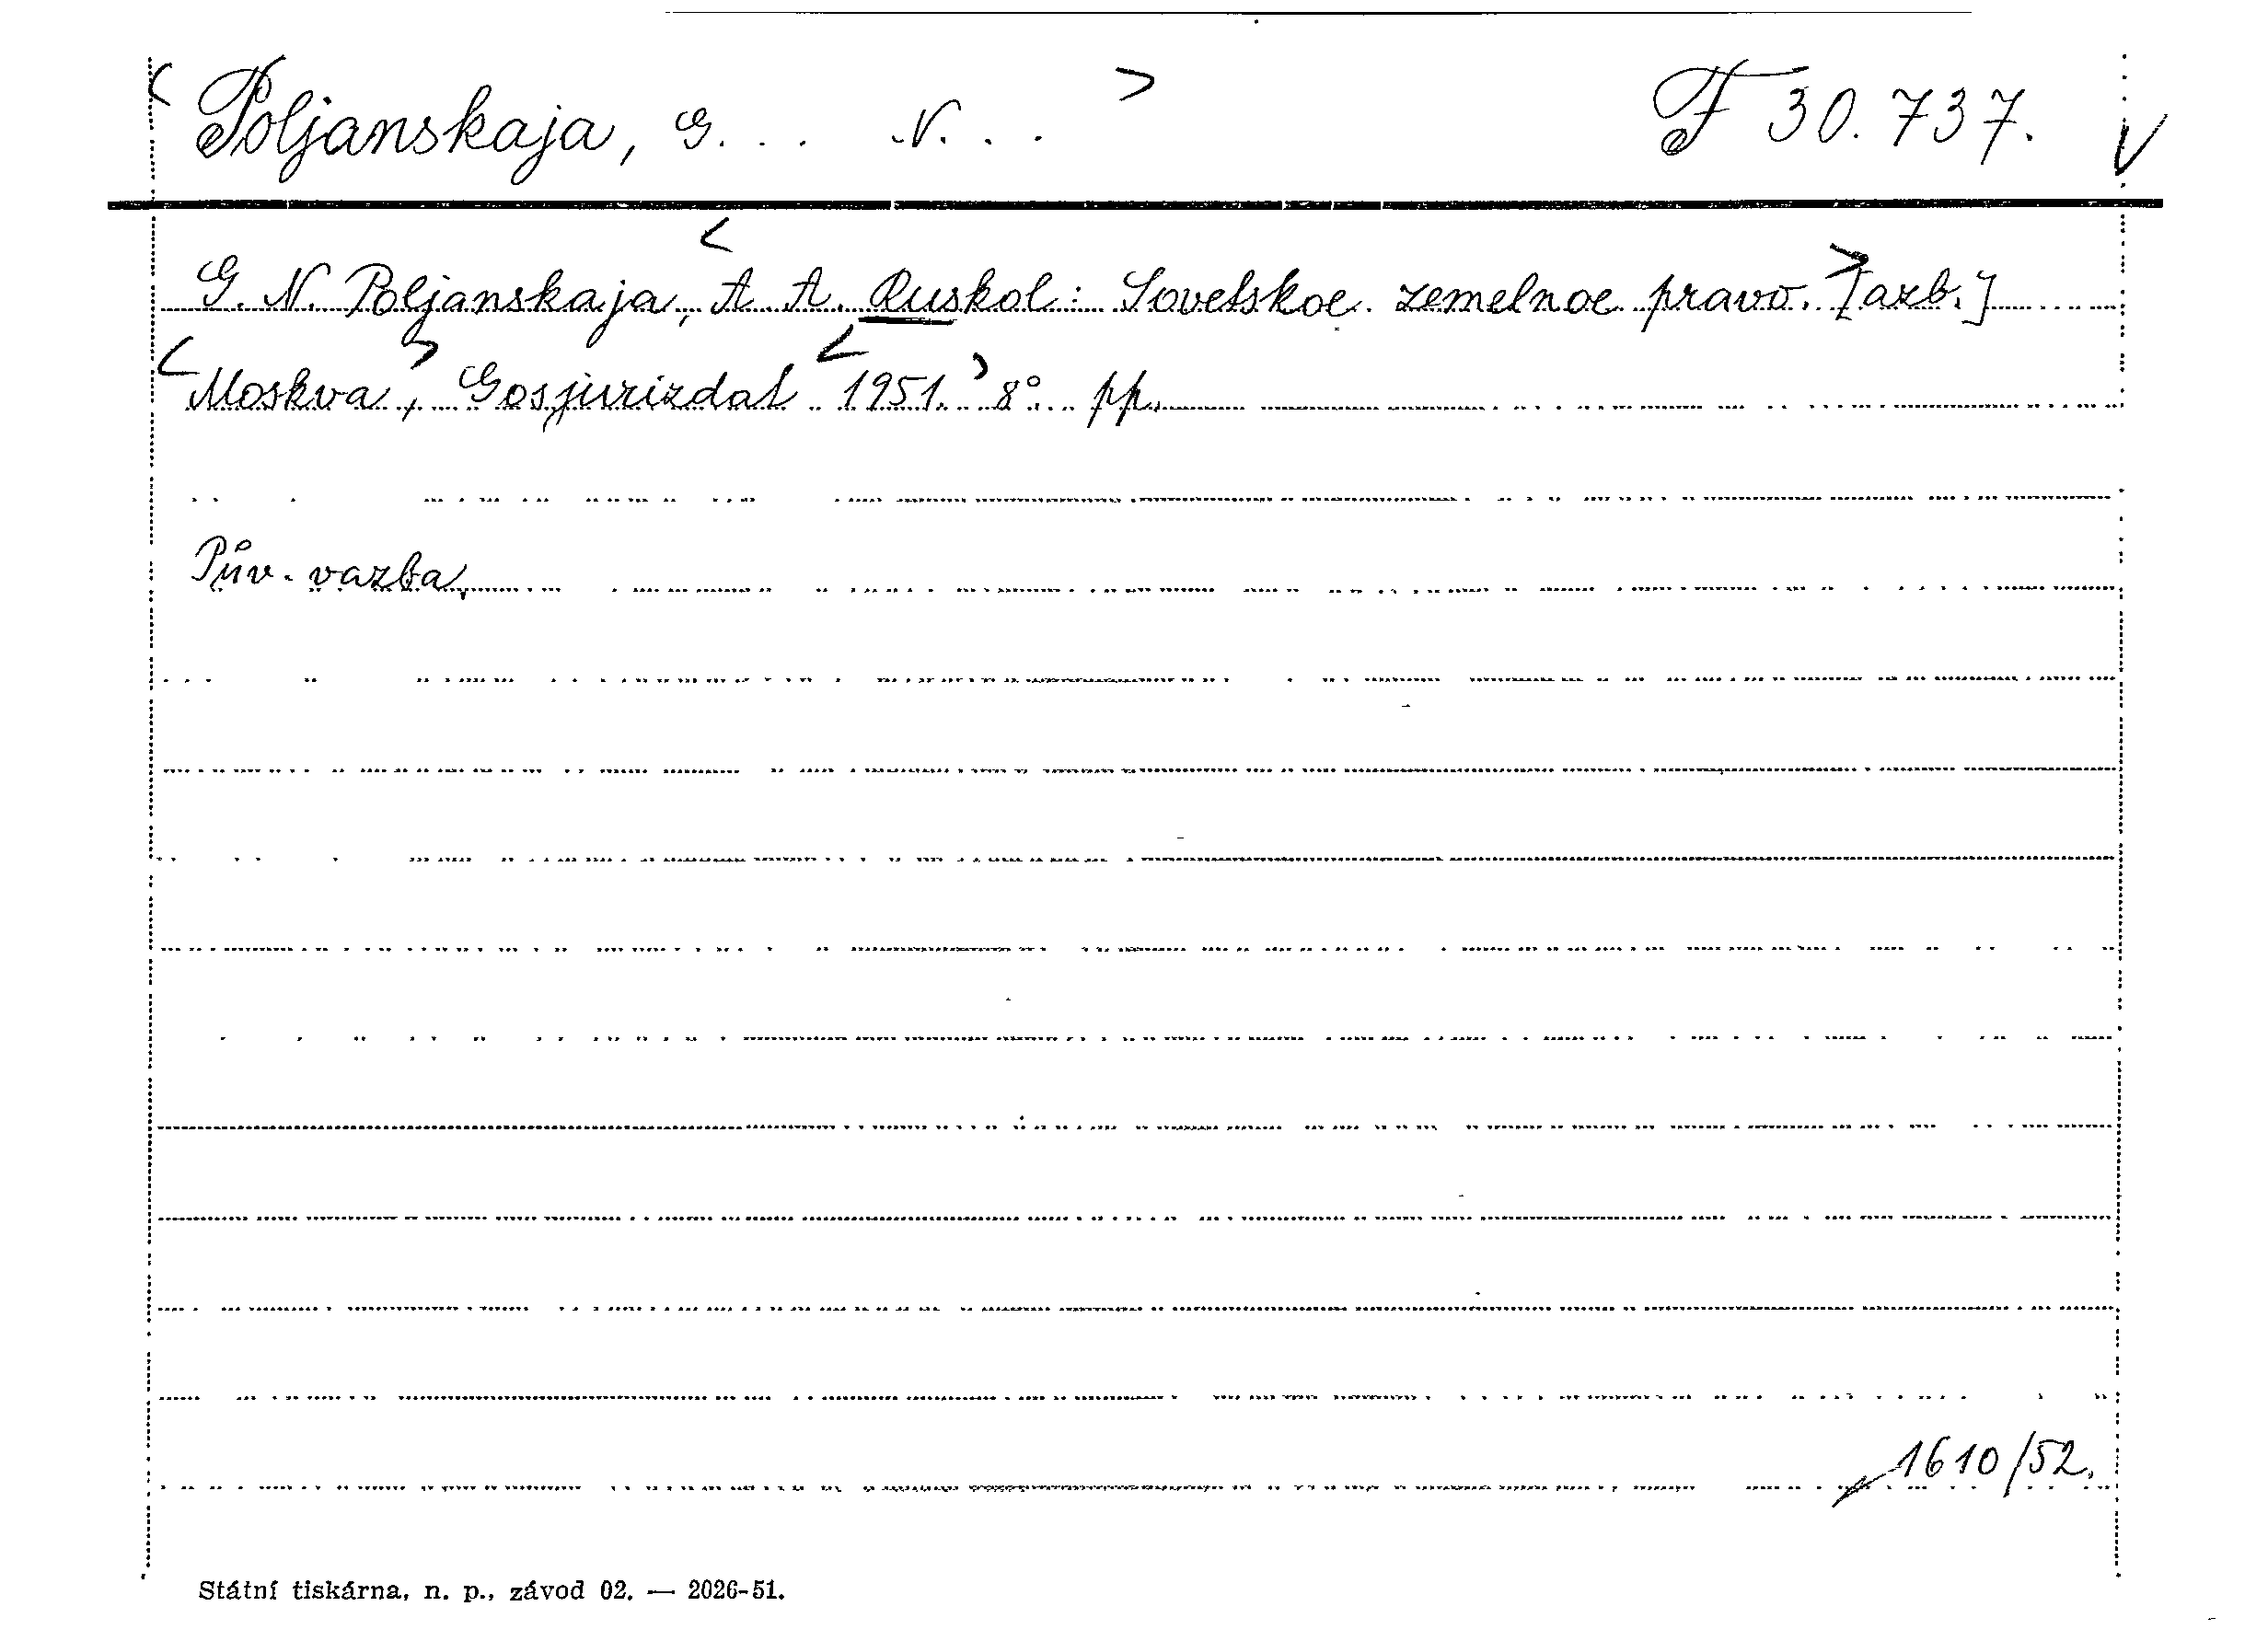 Poljanskaja, G... N... F 30.737.
G. N. Poljanskaja, A. A. Ruskol: Sovetskoe zemelnoe pravo. [azb.]
Moskva, Gosjurizdat 1951. 8°. pp.
Pův. vazba,
1610/52.
Státní tiskárna, n. p., závod 02. — 2026-51.